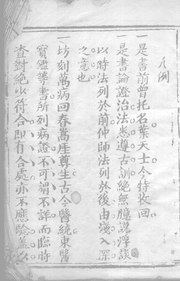 凡例
一是書前曾托名葉天士今特收回
一是書論證治法悉遵古訓絕無臆說浮談
以時法列於前仲師法列於後由淺入深
之意也
一坊刻萬病回春萬產尊生古今醫統東醫
寶鑑等書所列病證不可謂不詳而臨時
查對絕少符合即有合處亦不應驗